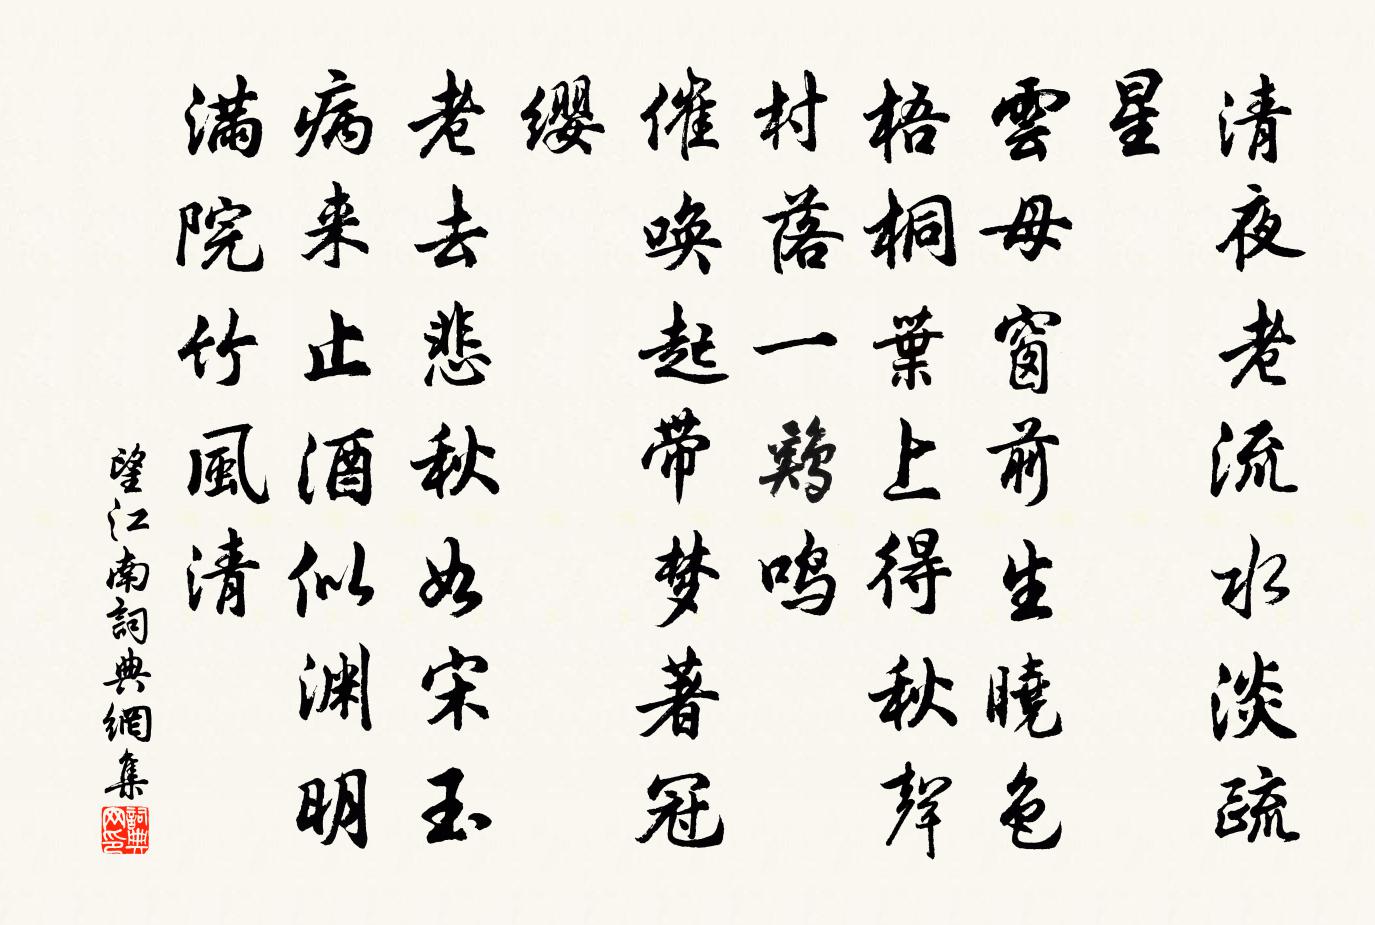 清夜老流水淡疏
星
雲母窗前生曉色
梧桐葉上得秋聲
村落一鷄鸣
催唤起带梦著冠
缨
老去悲秋如宋玉
病来止酒似渊明
满院竹風清
望江南詞典網集
詞典网印